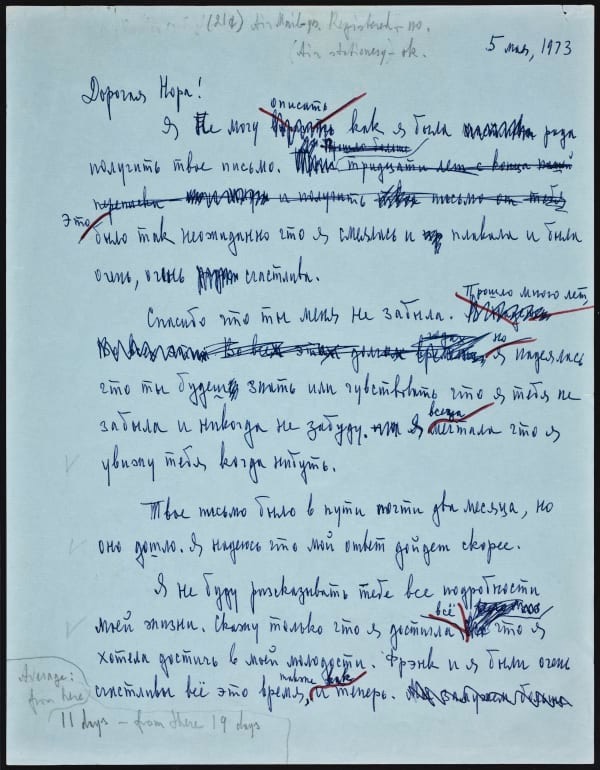 (21¢) Air Mail Registered - no.
(Air stationery - ok.
5 мая, 1973
Дорогая Нора!
описать
Я не могу как я была рада
Прошло больше
получить твое письмо. тридцати лет с конца нашей
переписки и получить письмо от тебя
Это
было так неожиданно что я смеялась и плакала и была
очень, очень счастлива.
Прошло много лет
Спасибо что ты меня не забыла.
годах но
Во всех этих долгих я надеялась
что ты будешь знать или чувствовать что я тебя не
всегда
забыла и никогда не забуду. Я мечтала что я
увижу тебя когда нибуть.
Твое письмо было в пути почти два месяца, но
оно дошло. Я надеюсь что мой ответ дойдет скорее.
Я не буду рассказывать тебе все подробности
всё
моей жизни. Скажу только что я достигла что я
хотела достичь в моей молодости. Фрэнк и я были очень
также как
счастливы всё это время, и теперь.
Average:
from here
11 days - from there 19 days